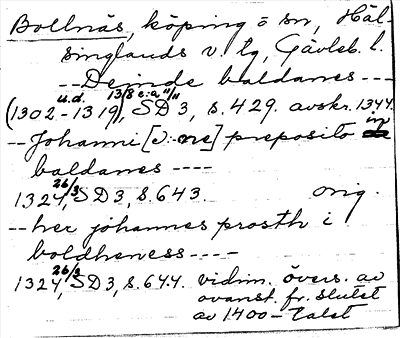 Bollnäs, köping o sn, Häl-
singlands v. tg, Gävleb. l.
-- Deinde baldanes ---
(1302 u.d. - 1319 13/8 e.a. "/11), SD 3, s. 429. avskr. 1344
-- Johanni [ɔ: -ne] preposito in
baldanes ----
1324 26/3, SD 3, s. 643. orig.
-- her johannes prosth i
boldheness ----
1324 26/3, SD 3, s. 644. vidim. övers. av
ovanst. fr. slutet
av 1400-talet